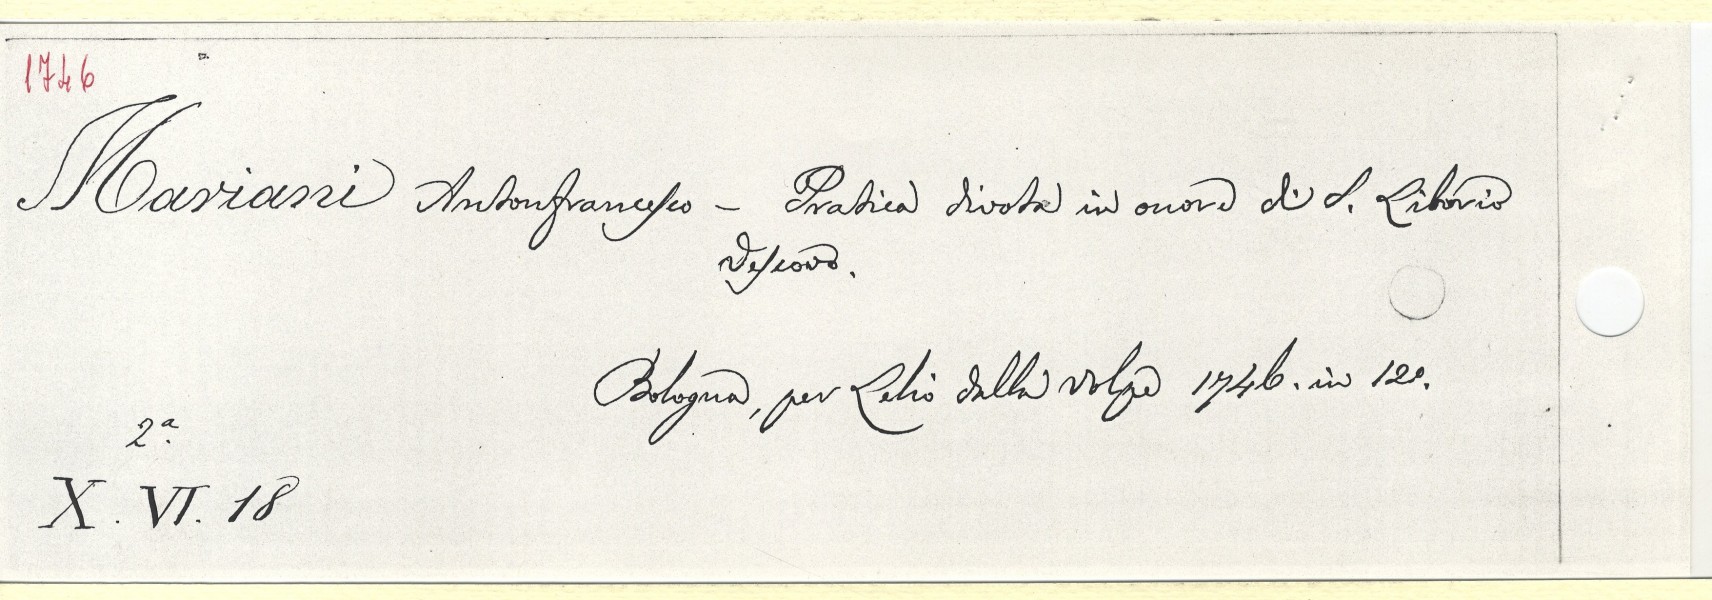 1746
Mariani Antonfrancesco - Pratica divota in onore di S. Liborio
Vescovo.
Bologna, per Lelio dalla Volpe 1746. in 12º.
2ª
X. VI. 18